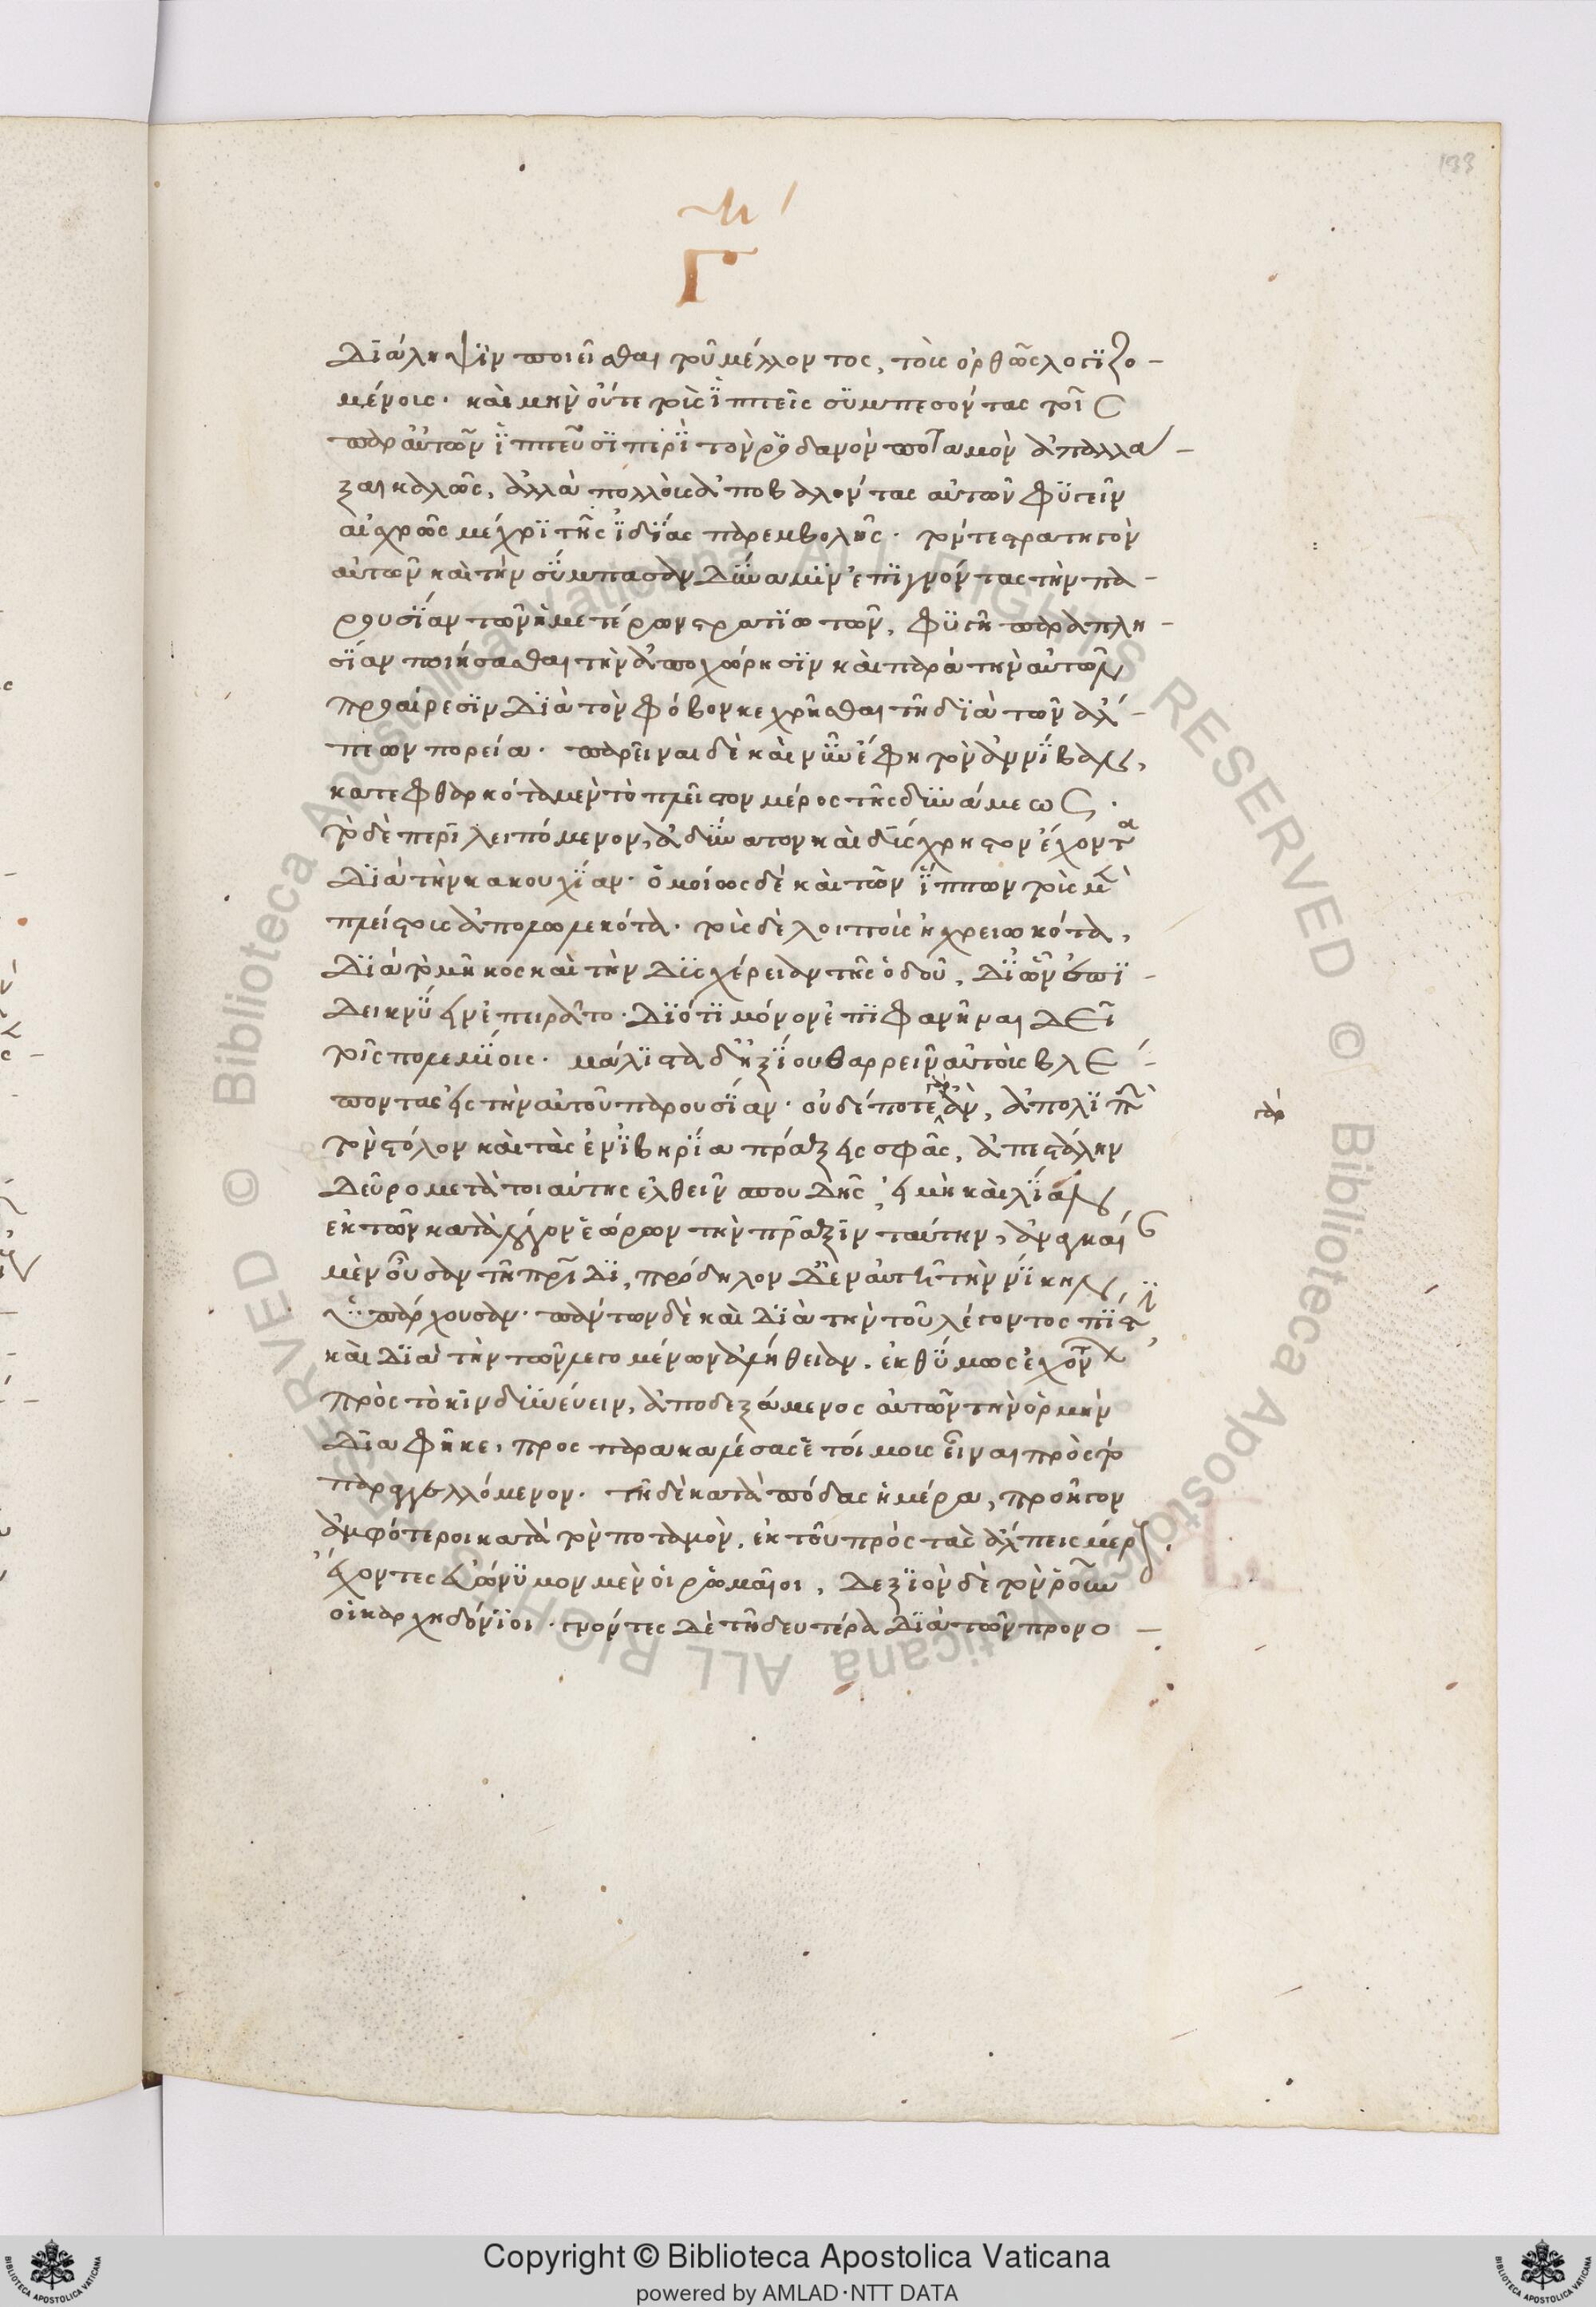 133
Γ
διάληψιν ποιεῖσθαι τοῦ μέλλοντος, τοῖς ὀρθῶς λογιζο-
μένοις. καὶ μὴν οὔτε τοὺς ἱππεῖς συμπεσόντας τοῖς
παρ αὐτῶν ἱππεῦσι περὶ τὸν ῥοδανὸν ποταμὸν ἀπαλλά-
ξαι καλῶς, ἀλλὰ πολλοὺς ἀποβαλόντας αὐτῶν φυγεῖν
αἰσχρῶς μέχρι τῆς ἰδίας παρεμβολῆς. τόν τε στρατηγὸν
αὐτῶν καὶ τὴν σύμπασαν δύναμιν ἐπιγνόντας τὴν πα-
ρουσίαν τῶν ἡμετέρων στρατιωτῶν, φυγῇ παραπλη-
σίαν ποιήσασθαι τὴν ἀποχώρησιν καὶ παρὰ τὴν αὐτῶν
προαίρεσιν διὰ τὸν φόβον κεχρῆσθαι τῇ διὰ τῶν ἄλ-
πεων πορεία. παρεῖναι δὲ καὶ νῦν ἔφη τὸν ἀννίβαν,
κατεφθαρκότα μὲν τὸ πλεῖστον μέρος τῆς δυνάμεως.
τὸ δὲ περιλειπόμενον, ἀδύνατον καὶ δύσχρηστον ἔχοντα
διὰ τὴν κακουχίαν. ὁμοίως δὲ καὶ τῶν ἵππων τοὺς μὲν
πλείστους ἀπολωλεκότα. τοὺς δὲ λοιποὺς ἠχρειωκότα,
διὰ τὸ μῆκος καὶ τὴν δυσχέρειαν τῆς ὁδοῦ, δι ὧν ἐπι-
δεικνύειν ἐπειρᾶτο. διότι μόνον ἐπιφανῆναι δεῖ
τοῖς πολεμίοις. μάλιστα δ ἠξίου θαρρεῖν αὐτοὺς βλέ-
ποντας εἰς τὴν αὑτοῦ παρουσίαν. οὐδέποτε γὰρ ἂν, ἀπολιπὼν
τὸν στόλον καὶ τὰς ἐν ἰβηρία πράξεις ἐφ ἃς, ἀπεστάλην
δεῦρο μετὰ τοιαύτης ἐλθεῖν σπουδῆς, εἰ μὴ καὶ λίαν
ἐκ τῶν κατὰ λόγον ἑώρων τὴν πρᾶξιν ταύτην, ἀναγκαί
μὲν οὖσαν τῇ πατρίδι, πρόδηλον δ ἐν αὐτῇ τὴν νίκην
ὑπάρχουσαν. πάντων δὲ καὶ διὰ τὴν τοῦ λέγοντος πίστιν
καὶ διὰ τὴν τῶν λεγομένων ἀλήθειαν. ἐκθύμως ἐχόντων
πρὸς τὸ κινδυνεύειν, ἀποδεξάμενος αὐτῶν τὴν ὁρμὴν
διαφῆκε, προσπαρακαλέσας ἑτοίμους εἶναι πρὸς τὸ
παραγγελλόμενον. τῇ δὲ κατὰ πόδας ἡμέρα, προῆγον
ἀμφότεροι κατὰ τὸν ποταμὸν. ἐκ τοῦ πρὸς τὰς ἄλπεις μέρους.
ἔχοντες εὐώνυμον μὲν οἱ ῥωμαῖοι, δεξιὸν δὲ τὸν ῥοῦν
οἱ καρχηδόνιοι. γνόντες δὲ τῇ δευτέρα διὰ τῶν προνο-
γὰρ
Copyright © Biblioteca Apostolica Vaticana
powered by AMLAD·NTT DATA
© Biblioteca Apostolica Vaticana ALL RIGHTS RESERVED © Biblioteca Apostolica Vaticana ALL RIGHTS RESERVED